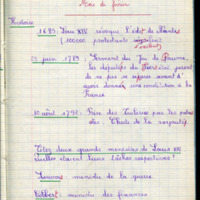 Mois de février
Histoire
1685 Louis XIV révoque l'édit de Nantes
(100000 protestants
s'exilent)
20 juin 1789 : Serment du Jeu de Paume,
les députés du Tiers état jurent
de ne pas se séparer avant d'
avoir donné une constitution à la
France.
10 août 1792 : Prise des Tuileries par les patri
otes. Chute de la royauté
Citez deux grands ministres de Louis XIV
quelles étaient leurs tâches respectives ?
Louvois : ministre de la guerre
Colbert : ministre des finances